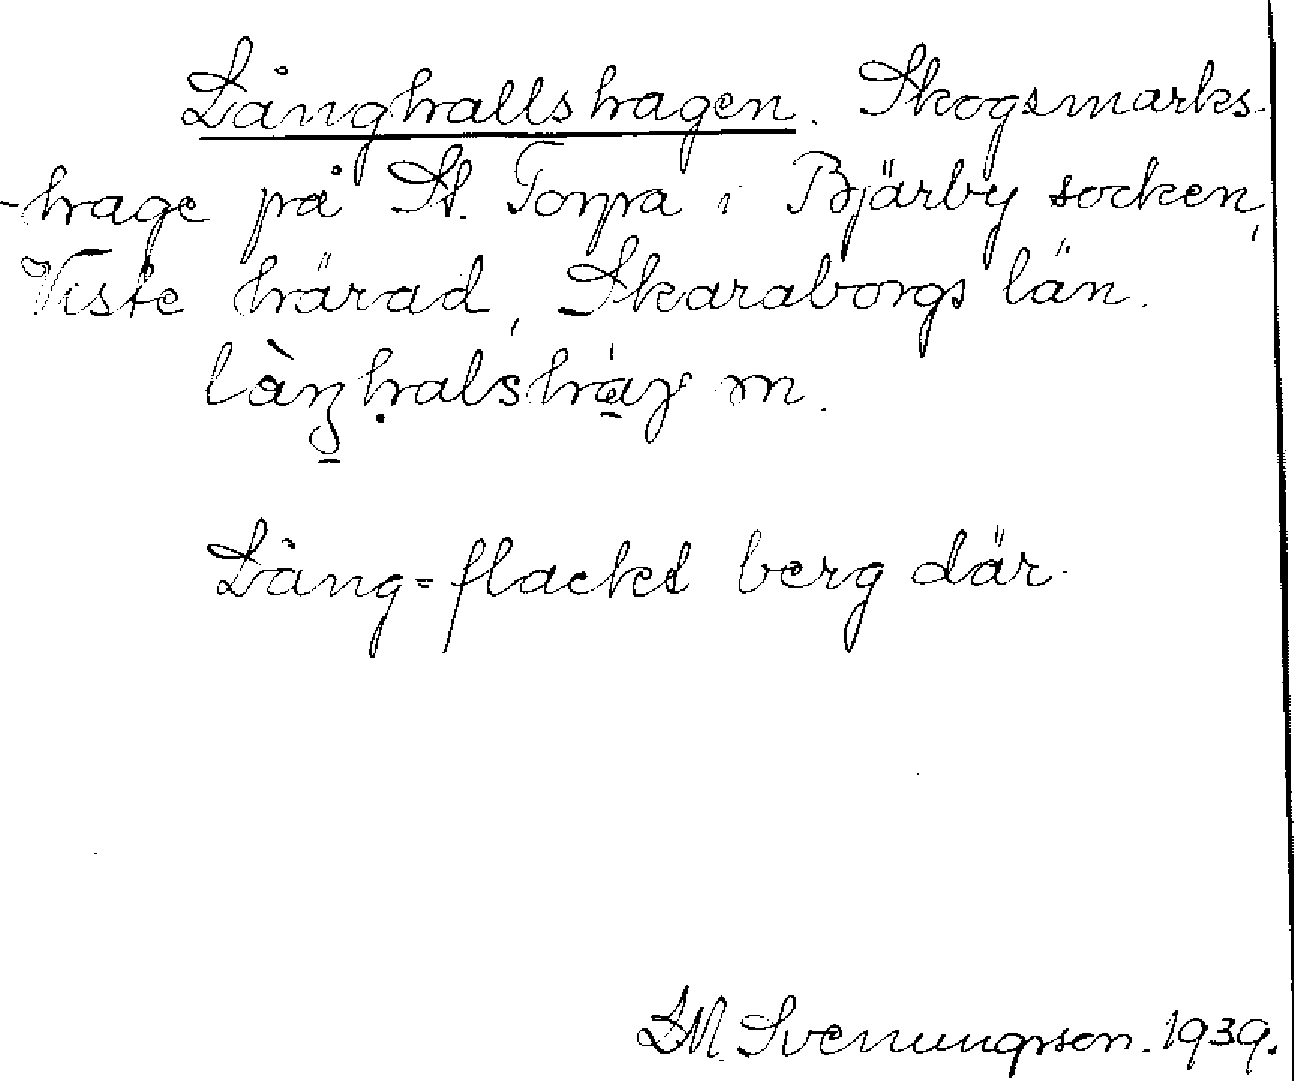 Långhallshagen. Skogsmarks-
-hage på St. Torpa i Bjärby socken,
Viste härad, Skaraborgs län.
m.
Lång=flacket berg där.
LM. Svenungsson. 1939.